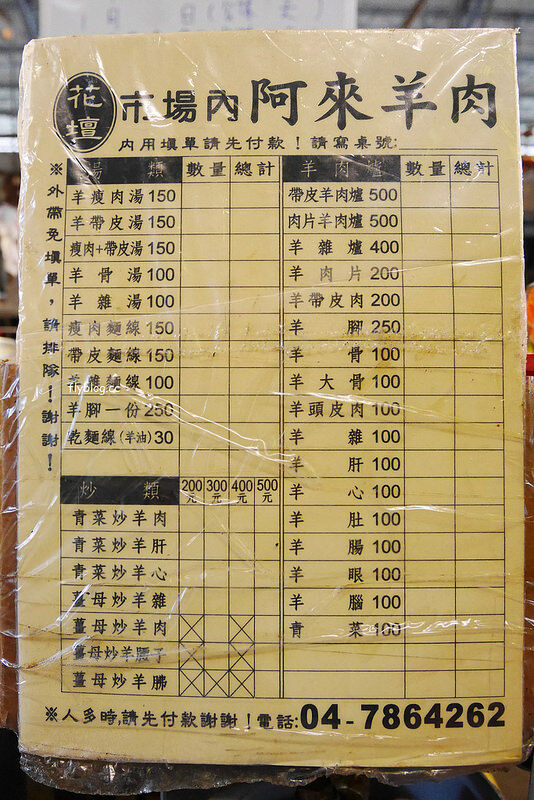 花壇 市場內 阿來羊肉
內用填單請先付款！請寫桌號:
※外帶免填單，請排隊！謝謝！
湯類 數量 總計
羊瘦肉湯 150
羊帶皮湯 150
瘦肉+帶皮湯 150
羊骨湯 100
羊雜湯 100
瘦肉麵線 150
帶皮麵線 150
羊雜麵線 100
羊腳一份 250
乾麵線(羊油) 30
炒類 200元 300元 400元 500元
青菜炒羊肉
青菜炒羊肝
青菜炒羊心
薑母炒羊雜
薑母炒羊肉
薑母炒羊腰子
薑母炒羊胇
羊肉爐 數量 總計
帶皮羊肉爐 500
肉片羊肉爐 500
羊雜爐 400
羊肉片 200
羊帶皮肉 200
羊腳 250
羊骨 100
羊大骨 100
羊頭皮肉 100
羊雜 100
羊肝 100
羊心 100
羊肚 100
羊腸 100
羊眼 100
羊腦 100
青菜 100
※人多時,請先付款謝謝！電話:04-7864262
flyblog.cc